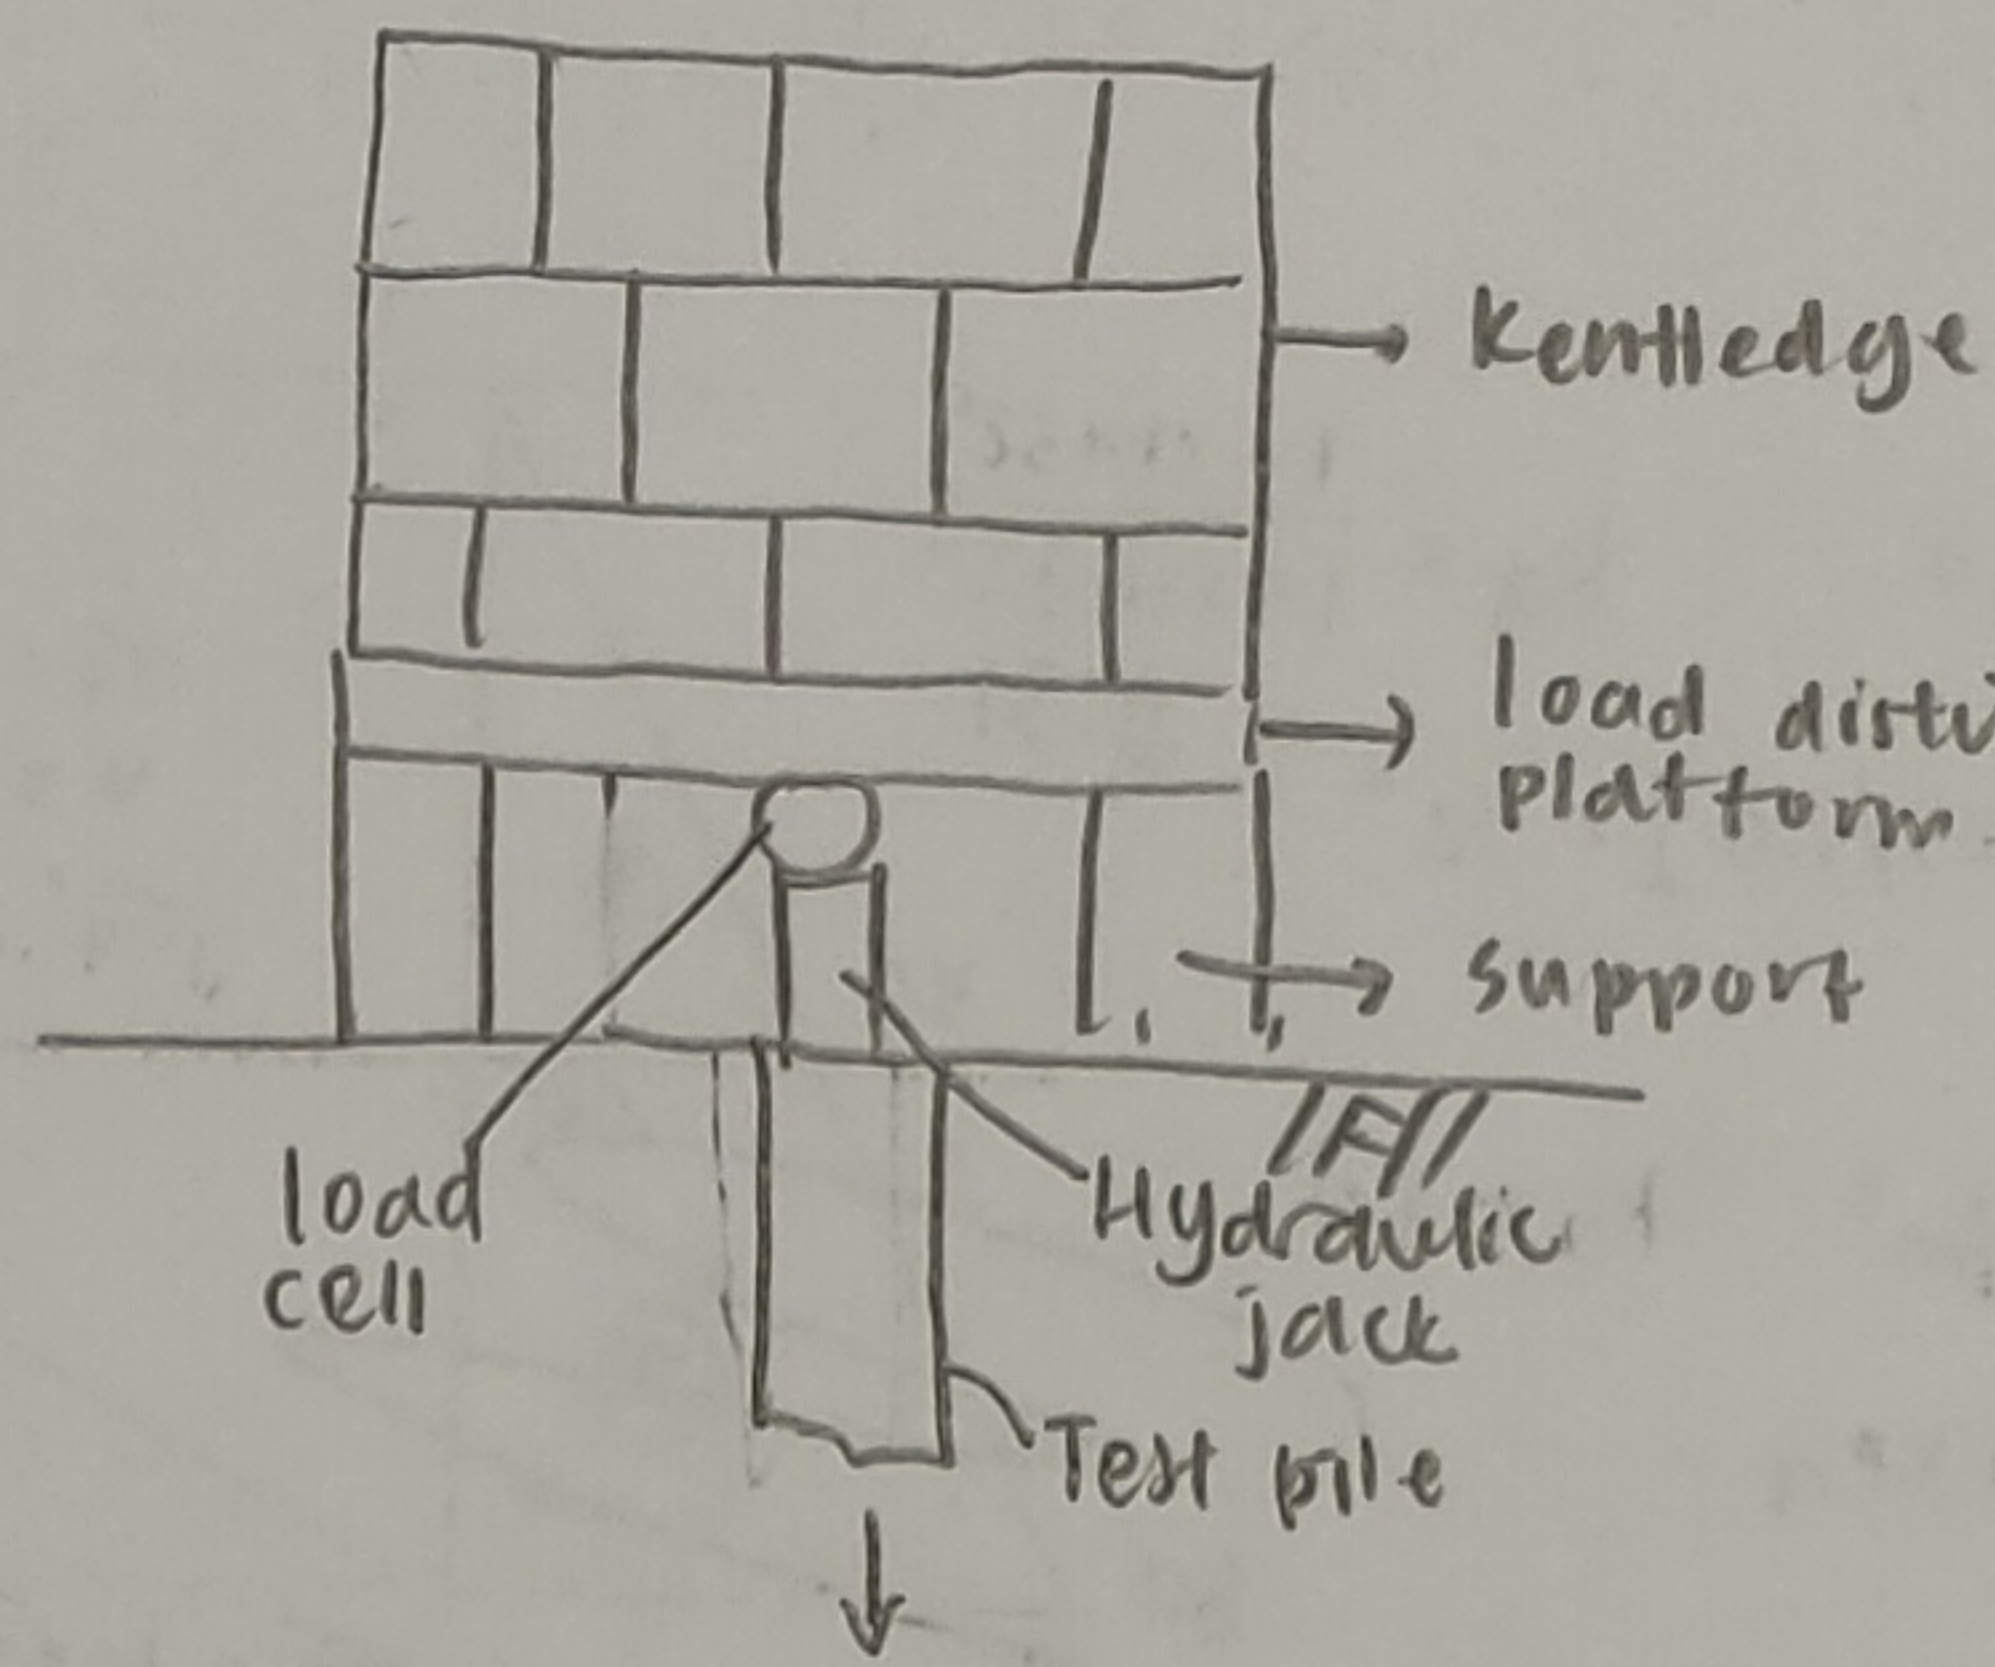 Kentledge
load
platform
support
load
cell
Hydraulic
jack
Test pile